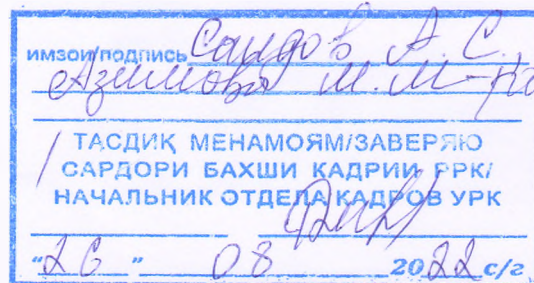 ИМЗОИ/ПОДПИСЬ Саидов А. С.
Азимова М. М-
ТАСДИҚ МЕНАМОЯМ/ЗАВЕРЯЮ
САРДОРИ БАХШИ КАДРИИ РРК/
НАЧАЛЬНИК ОТДЕЛА КАДРОВ УРК
"26" 08 2022 с/г